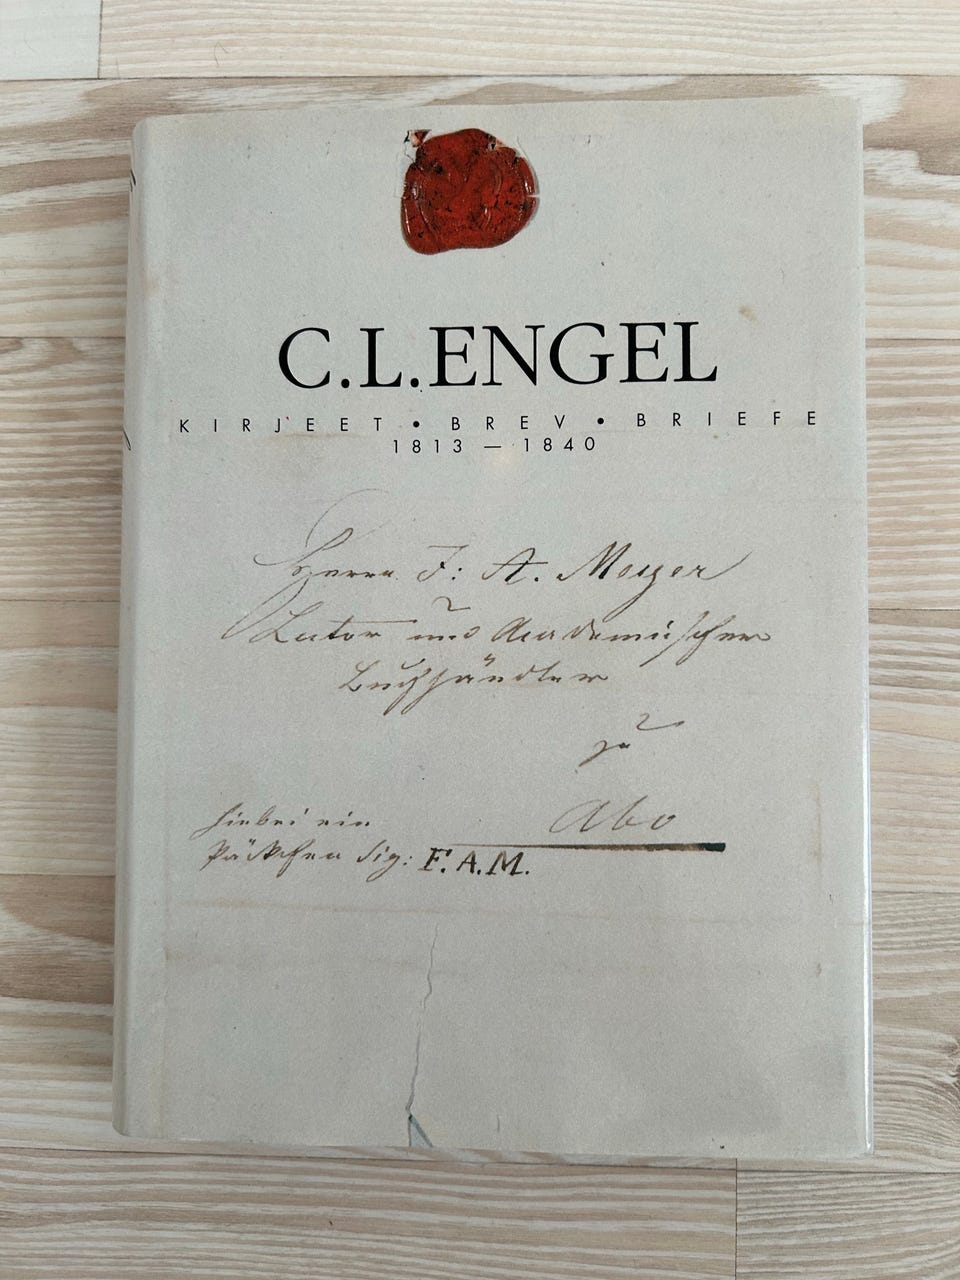 C.L.ENGEL
KIRJEET • BREV • BRIEFE
1813 — 1840
Herrn F: A. Meyer
Lector und Academischer
Buchhändler
zu
Abo
hiebei ein
Päckchen Sig: F.A.M.